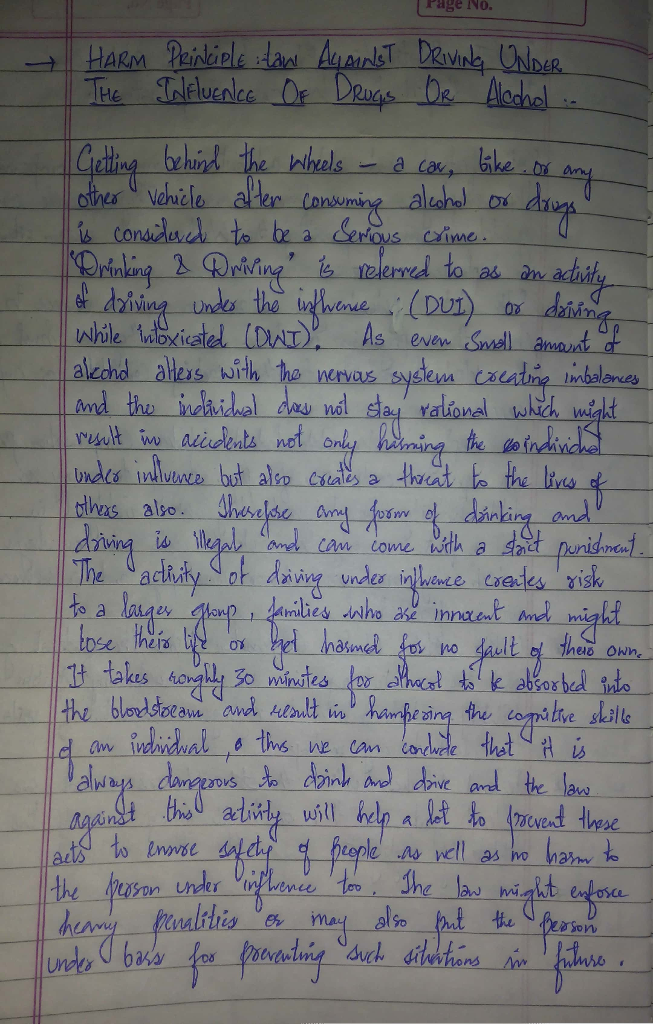 Page No.
→ HARM PRINCIPLE : Law AGAINST DRIVING UNDER
THE INFLUENCE OF DRUGS OR Alcohol :-
Getting behind the wheels – a car, bike or any
other vehicle after consuming alcohol or drugs
is considered to be a serious crime.
"Drinking & Driving" is referred to as an activity
of driving under the influence : (DUI) or driving
while intoxicated (DWI). As even small amount of
alcohol alters with the nervous system creating imbalances
and the individual does not stay rational which might
result in accidents not only harming the individual
under influence but also creates a threat to the lives of
others also. Therefore any form of drinking and
driving is illegal and can come with a strict punishment.
The activity of driving under influence creates risk
to a larger group, families who are innocent and might
lose their life or get harmed for no fault of their own.
It takes roughly 30 minutes for to be absorbed into
the bloodstream and result in hampering the cognitive skills
of an individual, thus we can conclude that it is
always dangerous to drink and drive and the law
against this activity will help a lot to prevent these
acts to ensure safety of people as well as no harm to
the person under influence too. The law might enforce
heavy penalities or may also put the person
under bars for preventing such situations in future.